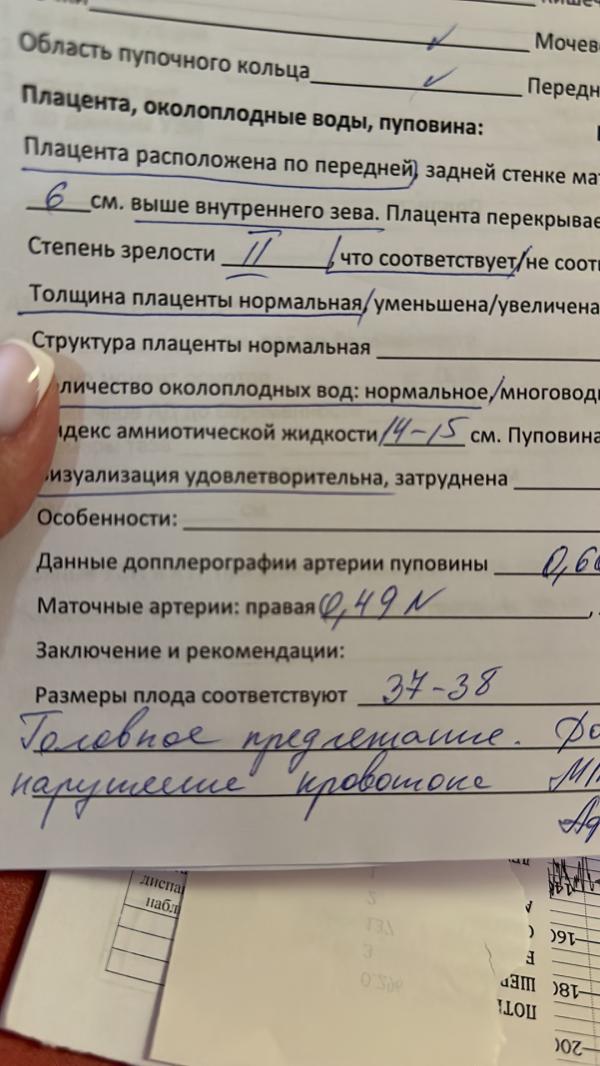 Мочев
Область пупочного кольца Передн
Плацента, околоплодные воды, пуповина:
Плацента расположена по передней, задней стенке ма
6 см. выше внутреннего зева. Плацента перекрывае
Степень зрелости II, что соответствует/не соот
Толщина плаценты нормальная/уменьшена/увеличена
Структура плаценты нормальная
оличество околоплодных вод: нормальное/многовод
ндекс амниотической жидкости 14-15 см. Пуповина
изуализация удовлетворительна, затруднена
Особенности:
Данные допплерографии артерии пуповины 0,6
Маточные артерии: правая 0,49 N,
Заключение и рекомендации:
Размеры плода соответствуют 37-38
Головное предлежание.
нарушение кровотока
диспа
набл
137
3
0.296
140
160
180
200
ПОТ